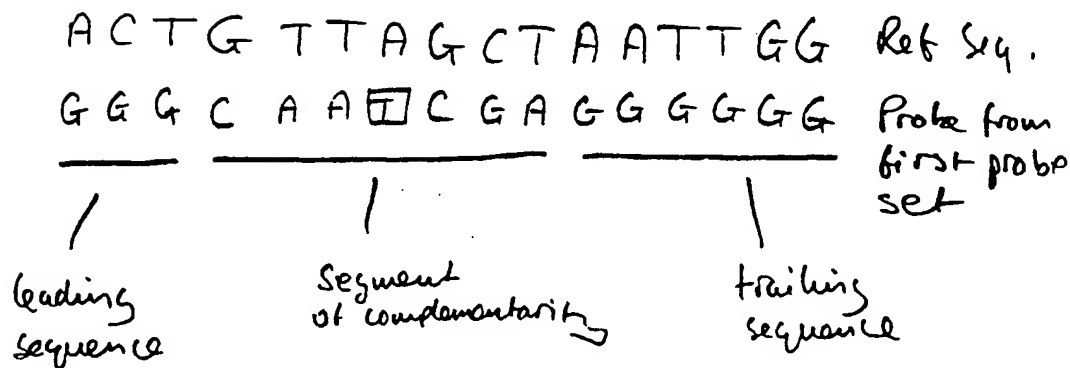 A C T G T T A G C T A A T T G G Ref Seq.
G G G C A A T C G A G G G G G G Probe from first probe set
leading sequence
segment of complementarity
trailing sequence